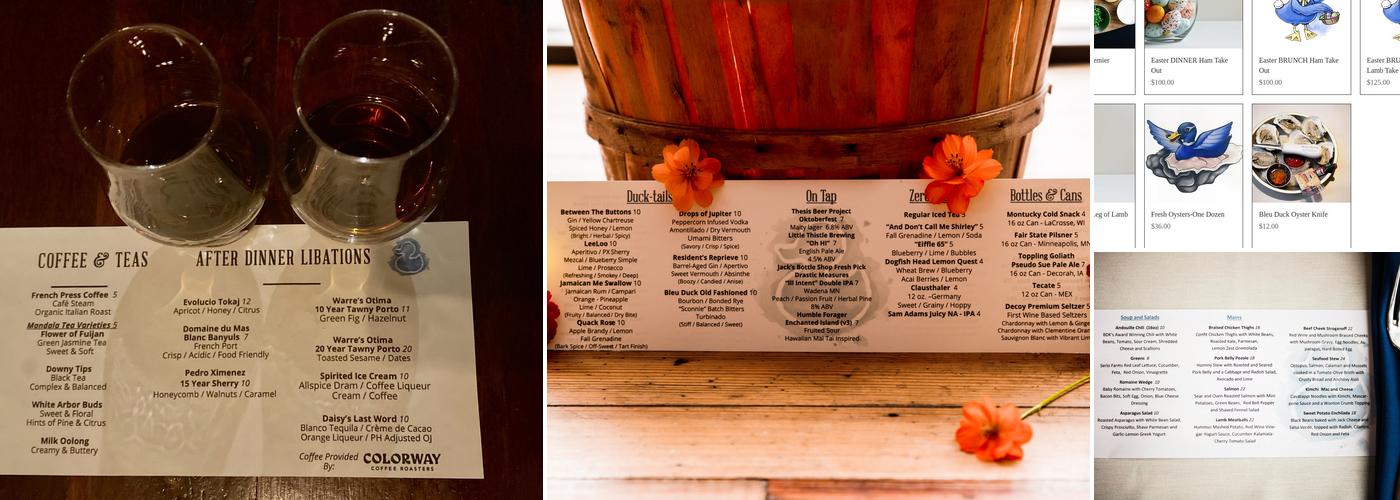 COFFEE & TEAS
French Press Coffee 5
Café Steam
Organic Italian Roast
Mandala Tea Varieties 5
Flower of Fuijan
Green Jasmine Tea
Sweet & Soft
Downy Tips
Black Tea
Complex & Balanced
White Arbor Buds
Sweet & Floral
Hints of Pine & Citrus
Milk Oolong
Creamy & Buttery
AFTER DINNER LIBATIONS
Evolucio Tokaj 12
Apricot / Honey / Citrus
Domaine du Mas
Blanc Banyuls 7
French Port
Crisp / Acidic / Food Friendly
Pedro Ximenez
15 Year Sherry 10
Honeycomb / Walnuts / Caramel
Warre's Otima
10 Year Tawny Porto 11
Green Fig / Hazelnut
Warre's Otima
20 Year Tawny Porto 20
Toasted Sesame / Dates
Spirited Ice Cream 10
Allspice Dram / Coffee Liqueur
Cream / Coffee
Daisy's Last Word 10
Blanco Tequila / Crème de Cacao
Orange Liqueur / PH Adjusted OJ
Coffee Provided
By:
COLORWAY
COFFEE ROASTERS
Duck-tails
Between The Buttons 10
Gin / Yellow Chartreuse
Spiced Honey / Lemon
(Bright / Herbal / Spicy)
LeeLoo 10
Aperitivo / PX Sherry
Mezcal / Blueberry Simple
Lime / Prosecco
(Refreshing / Smokey / Deep)
Jamaican Me Swallow 10
Jamaican Rum / Campari
Orange - Pineapple
Lime / Coconut
(Fruity / Balanced / Bitter)
Quack Rose 10
Apple Brandy / Lemon
Fall Grenadine
(Bark Spice / Off-Sweet / Tart Finish)
Drops of Jupiter 10
Peppercorn Infused Vodka
Amontillado / Dry Vermouth
Umami Bitters
(Savory / Crisp / Spic)
Resident's Reprieve 10
Barrel-Aged Gin / Aperitivo
Sweet Vermouth / Absinthe
(Boozy / Classy / Anise)
Bleu Duck Old Fashioned 10
Bourbon / Bonded Rye
"Sconnie" Batch Bitters
Turbinado
(Stiff / Balanced / Sweet)
On Tap
Thesis Beer Project
Oktoberfest 7
Malty lager 6.8% ABV
Little Thistle Brewing
"Oh Hi" 7
English Pale Ale
4.5% ABV
Jack's Bottle Shop Fresh Pick
Drastic Measures
"Ill Intent" Double IPA 7
Wadena MN
Peach / Passion Fruit / Herbal Pine
8% ABV
Humble Forager
Enchanted Island (v3) 7
Fruited Sour
Hawaiian Mai Tai Inspired
Zer
Regular Iced Tea 3
"And Don't Call Me Shirley" 5
Fall Grenadine / Lemon / Soda
"Eiffle 65" 5
Blueberry / Lime / Bubbles
Dogfish Head Lemon Quest 4
Wheat Brew / Blueberry
Acai Berries / Lemon
Clausthaler 4
12 oz. –Germany
Sweet / Grainy / Hoppy
Sam Adams Juicy NA - IPA 4
Bottles & Cans
Montucky Cold Snack 4
16 oz Can – LaCrosse, WI
Fair State Pilsner 5
16 oz Can - Minneapolis, MN
Toppling Goliath
Pseudo Sue Pale Ale 7
16 oz Can - Decorah, IA
Tecate 5
12 oz Can - MEX
Decoy Premium Seltzer 5
First Wine Based Seltzers
Chardonnay with Lemon & Ginge
Chardonnay with Clementine Oran
Sauvignon Blanc with Vibrant Lim
Easter DINNER Ham Take
Out
$100.00
Easter BRUNCH Ham Take
Out
$100.00
Easter BRU
Lamb Take
$125.00
eg of Lamb
Fresh Oysters-One Dozen
$36.00
Bleu Duck Oyster Knife
$12.00
Soup and Salads
Andouille Chili (16oz) 10
BDK's Award Winning Chili with White
Beans, Tomato, Sour Cream, Shredded
Cheese and Scallions
Greens 8
Serio Farms Red Leaf Lettuce, Cucumber,
Feta, Red Onion, Vinaigrette
Romaine Wedge 10
Baby Romaine with Cherry Tomatoes,
Bacon Bits, Soft Egg, Onion, Blue Cheese
Dressing
Asparagus Salad 10
Roasted Asparagus with White Bean Salad,
Crispy Prosciutto, Shave Parmesan and
Garlic-Lemon Greek Yogurt
Mains
Braised Chicken Thighs 18
Confit Chicken Thighs with White Beans,
Roasted Kale, Parmesan,
Lemon Zest Gremolada
Pork Belly Pozole 18
Hominy Stew with Roasted and Seared
Pork Belly and a Cabbage and Radish Salad,
Avocado and Lime
Salmon 22
Sear and Oven Roasted Salmon with Mint
Potatoes, Green Beans, Red Bell Pepper
and Shaved Fennel Salad
Lamb Meatballs 22
Hummus Mashed Potato, Red Wine Vine-
gar Yogurt Sauce, Cucumber Kalamata-
Cherry Tomato Salad
Beef Cheek Stroganoff 22
Red Wine and Mushroom Braised Cheeks
with Mushroom Gravy, Egg Noodles, As-
paragus, Hard Boiled Egg
Seafood Stew 24
Octopus, Salmon, Calamari and Mussels
cooked in a Tomato-Olive Broth with
Crusty Bread and Anchovy Aioli
Kimchi Mac and Cheese
Cavatappi Noodles with Kimchi, Mascar-
pone Sauce and a Wonton Crumb Topping
Sweet Potato Enchilada 18
Black Beans baked with Jack Cheese and
Salsa Verde, topped with Radish, Cilantro,
Red Onion and Feta